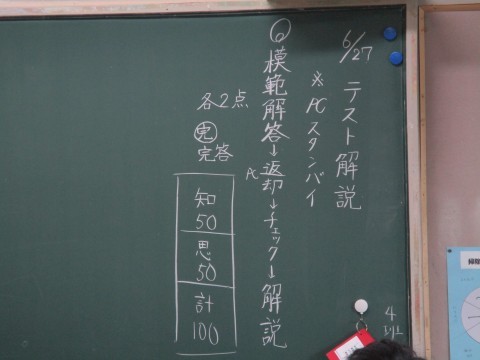 6/27
テスト解説
※ PCスタンバイ
◎模範解答→返却→チェック→解説
PC
各2点
完
完答
知
50
思
50
計
100
4班